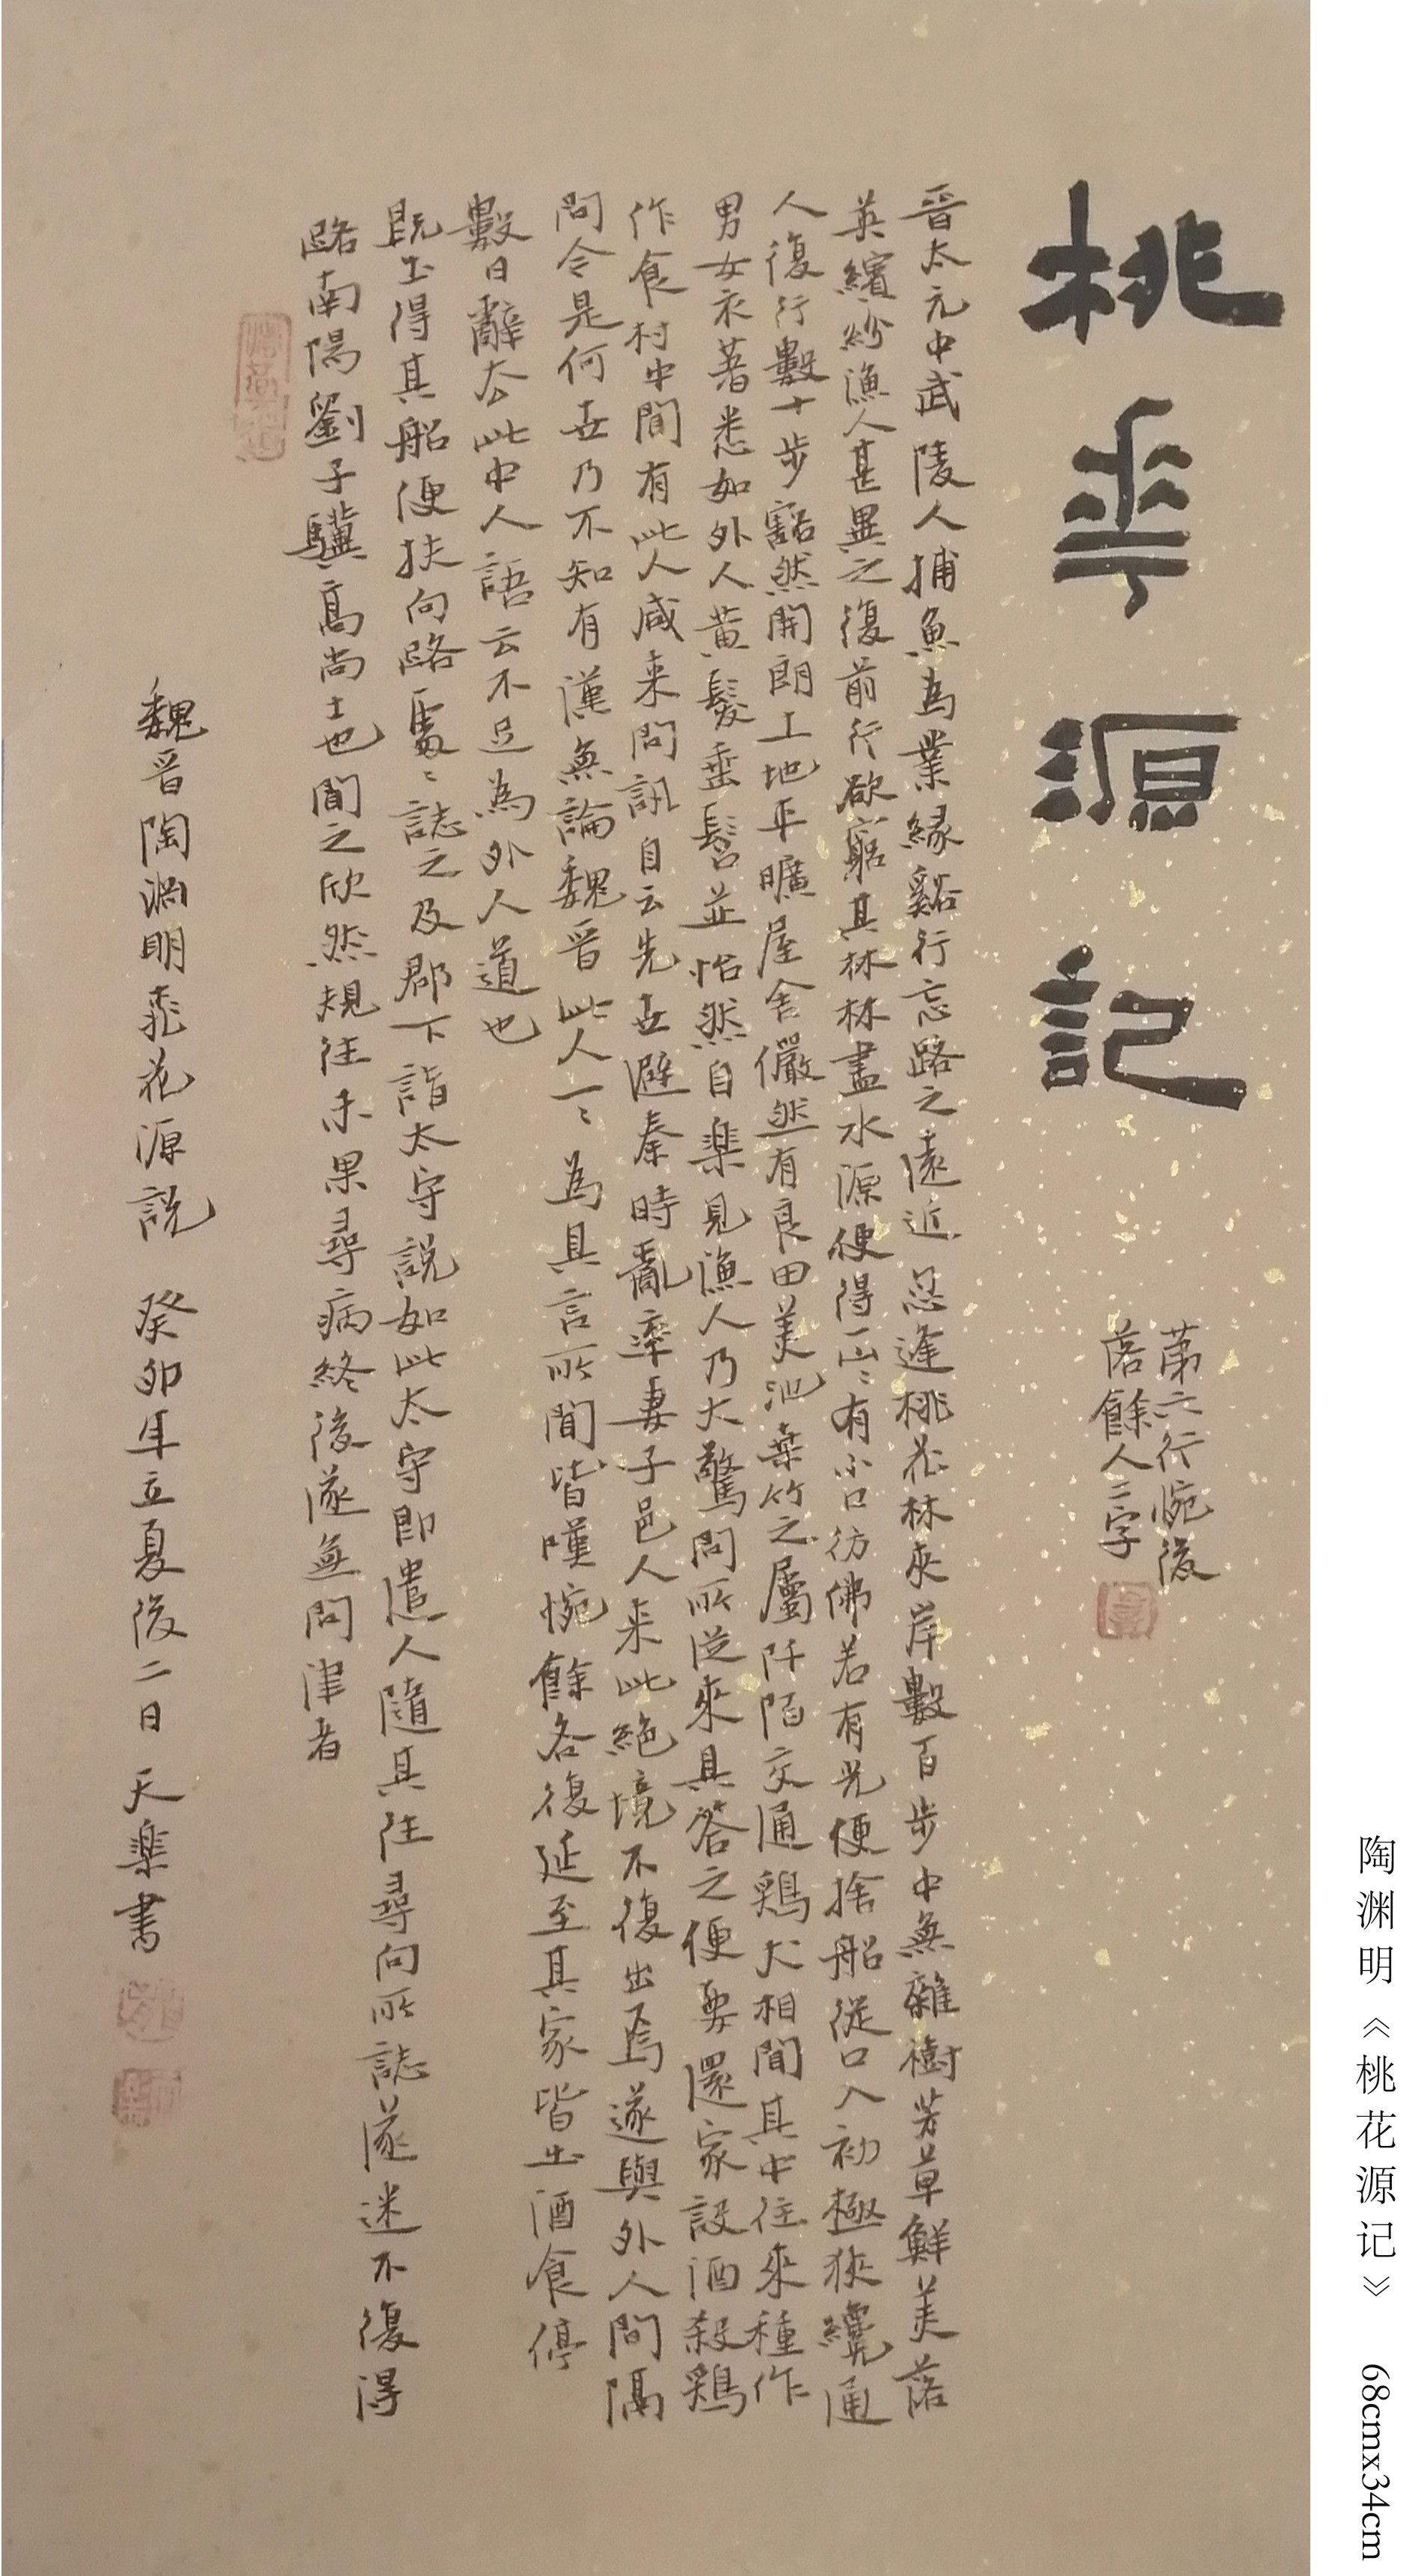 桃華源記
第六行惋後
落餘人二字
晉太元中武陵人捕魚為業緣谿行忘路之遠近忽逢桃花林夾岸數百步中無雜樹芳草鮮美落
英繽紛漁人甚異之復前行欲窮其林林盡水源便得一山〻有小口彷佛若有光便捨船從口入初極狹纔通
人復行數十步豁然開朗土地平曠屋舍儼然有良田美池桑竹之屬阡陌交通鷄犬相聞其中往來種作
男女衣著悉如外人黃髮垂髫並怡然自樂見漁人乃大驚問所從來具答之便要還家設酒殺鷄
作食村中聞有此人咸来問訊自云先世避秦時亂率妻子邑人来此絕境不復出焉遂與外人間隔
問今是何世乃不知有漢無論魏晉此人一〻為具言所聞皆嘆惋餘各復延至其家皆出酒食停
數日辭去此中人語云不足為外人道也
既出得其船便扶向路處〻誌之及郡下詣太守說如此太守即遣人隨其往尋向所誌遂迷不復得
路南陽劉子驥高尚士也聞之欣然規往未果尋病終後遂無問津者
魏晉陶淵明桃花源說 癸卯年立夏後二日 天樂書
陶渊明《桃花源记》 68cmx34cm